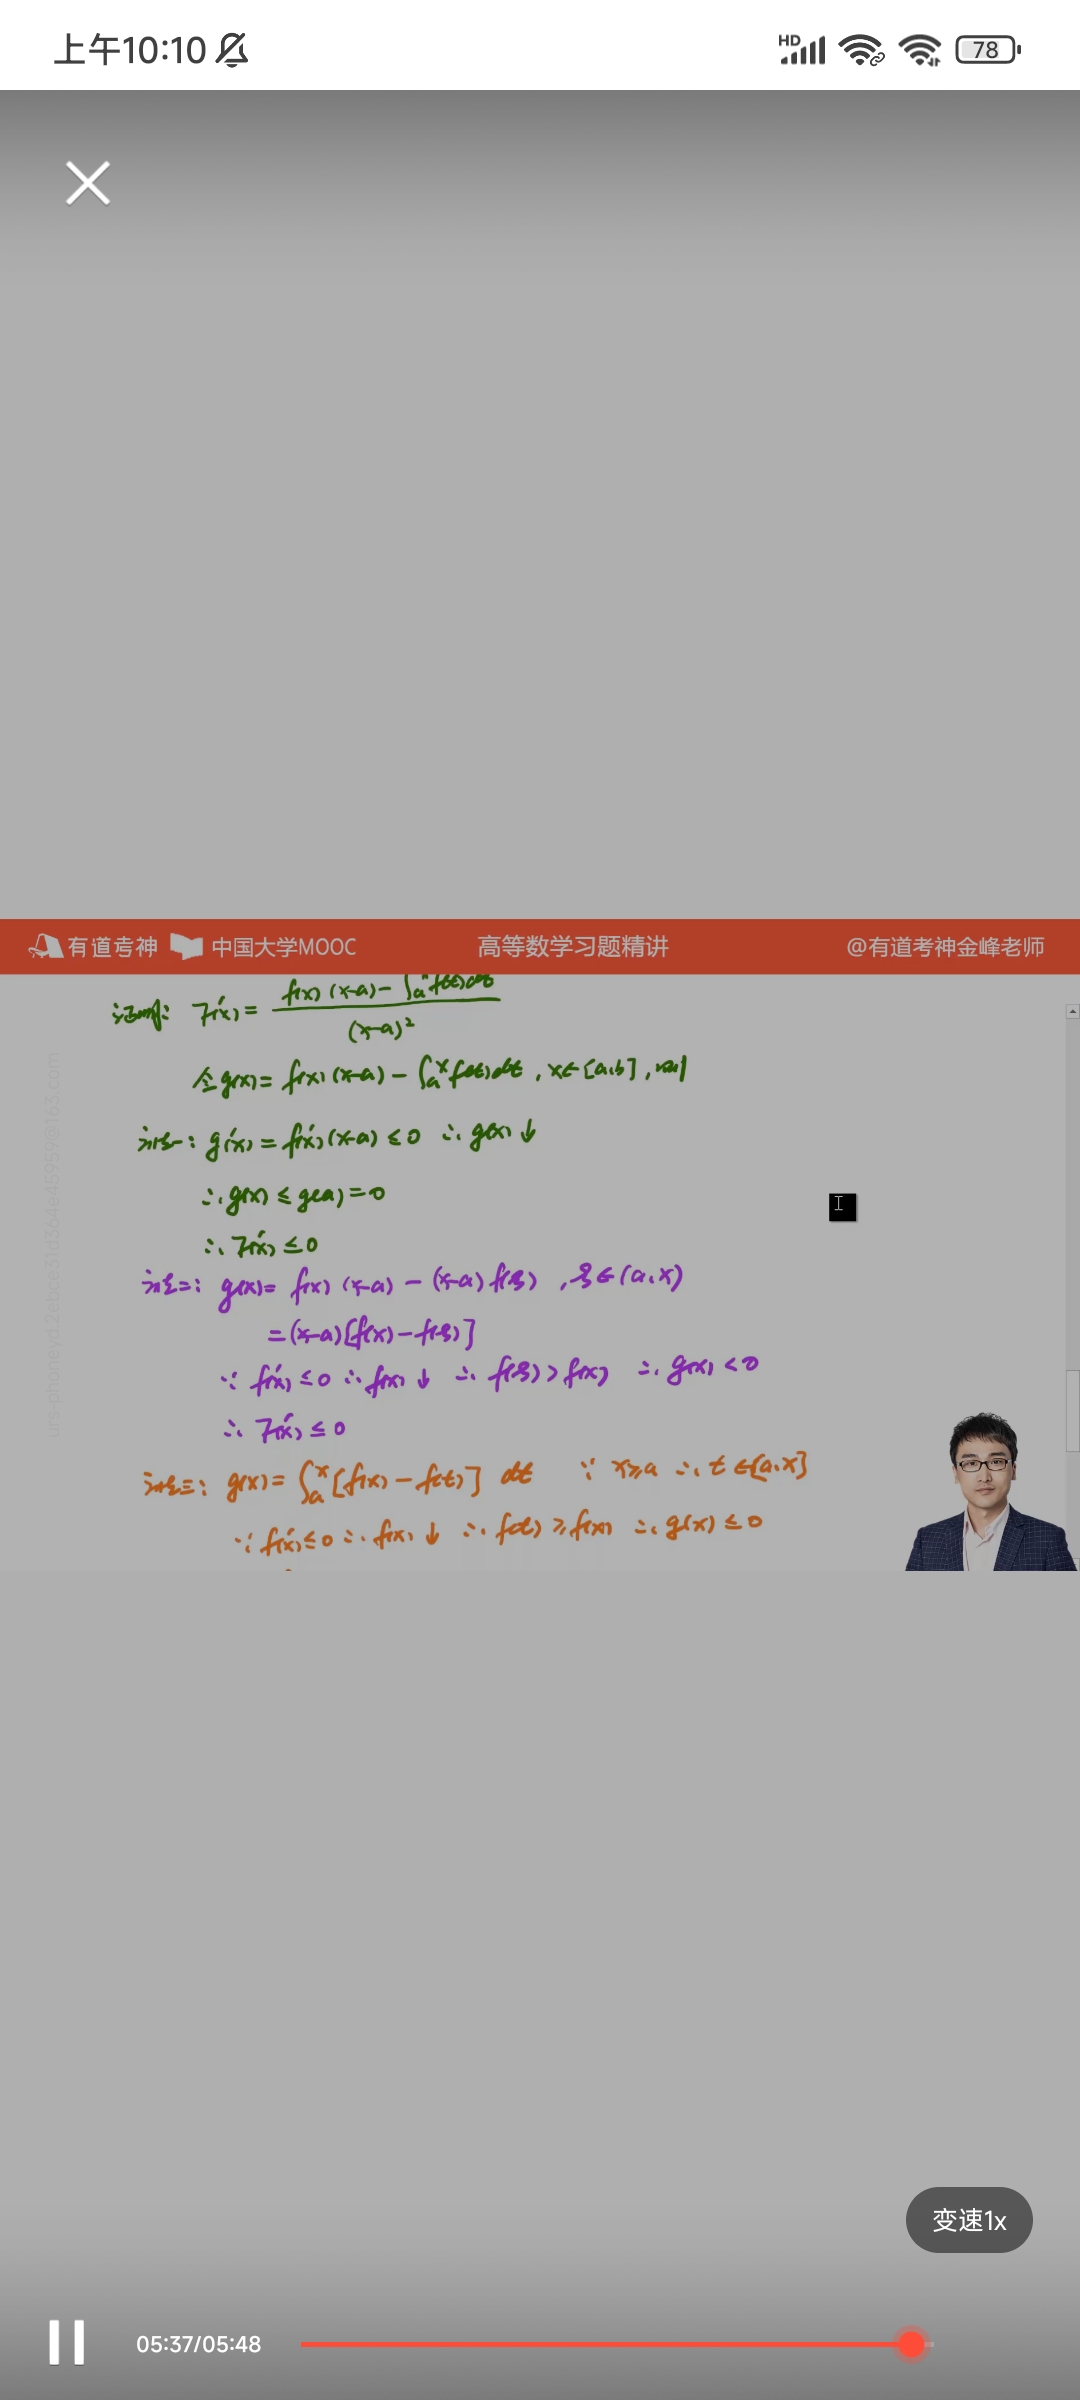 上午10:10 HD 78
有道考神 中国大学MOOC 高等数学习题精讲 @有道考神金峰老师
证明: F'(x) = \frac{f(x)(x-a) - ∫_a^x f(t)dt}{(x-a)²}
令 g(x) = f(x)(x-a) - ∫_a^x f(t)dt , x∈[a,b] , 则
法一: g'(x) = f'(x)(x-a) ≤ 0 ∴ g(x)↓
∴ g(x) ≤ g(a) = 0
∴ F'(x) ≤ 0
法二: g(x) = f(x)(x-a) - (x-a)f(ξ) , ξ∈(a,x)
= (x-a)[f(x) - f(ξ)]
∵ f'(x) ≤ 0 ∴ f(x)↓ ∴ f(ξ) > f(x) ∴ g(x) < 0
∴ F'(x) ≤ 0
法三: g(x) = ∫_a^x [f(x) - f(t)] dt ∵ x ≥ a ∴ t∈[a,x]
∵ f'(x) ≤ 0 ∴ f(x)↓ ∴ f(t) ≥ f(x) ∴ g(x) ≤ 0
变速1x
05:37/05:48